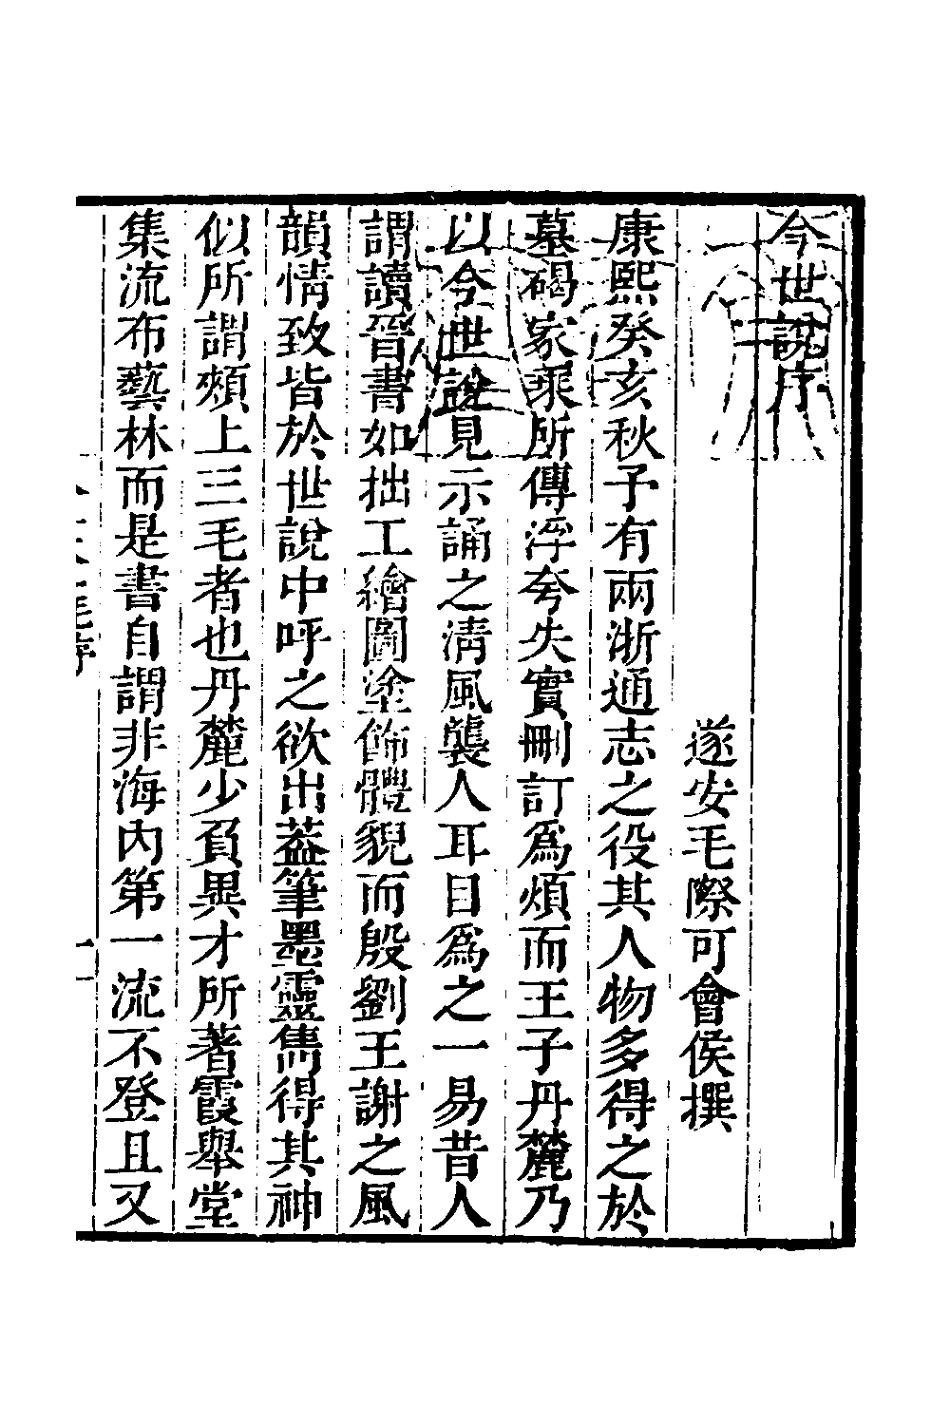 今世說序
遂安毛際可會侯撰
康熙癸亥秋予有兩浙通志之役其人物多得之於
墓碣家乘所傳浮夸失實刪訂為煩而王子丹麓乃
以今世說見示誦之淸風襲人耳目為之一易昔人
謂讀晉書如拙工繪圖塗飾體貌而殷劉王謝之風
韻情致皆於世說中呼之欲出葢筆墨靈雋得其神
似所謂頰上三毛者也丹麓少負異才所著霞舉堂
集流布藝林而是書自謂非海內第一流不登且又